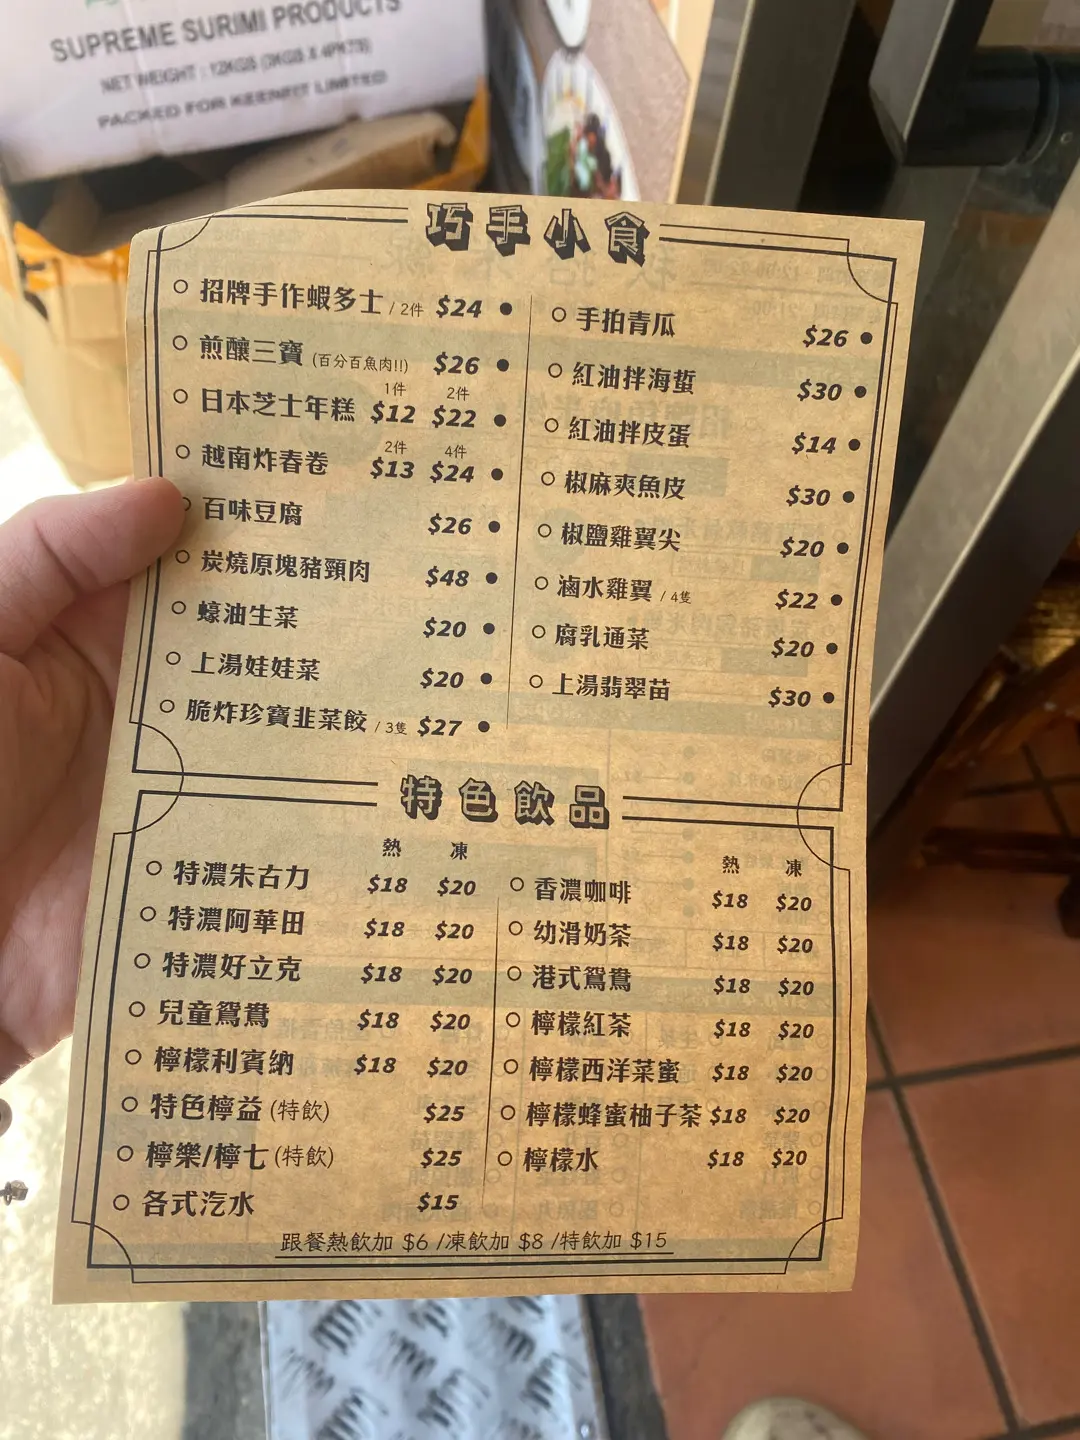 SUPREME SURIMI PRODUCTS
NET WEIGHT : 12KGS (3KGS X 4PKTS)
PACKED FOR KEENFIT LIMITED
巧手小食
招牌手作蝦多士 / 2件 $24
煎釀三寶 (百分百魚肉!!) $26
1件 2件
日本芝士年糕 $12 $22
2件 4件
越南炸春卷 $13 $24
百味豆腐 $26
炭燒原塊豬頸肉 $48
蠔油生菜 $20
上湯娃娃菜 $20
脆炸珍寶韭菜餃 / 3隻 $27
手拍青瓜 $26
紅油拌海蜇 $30
紅油拌皮蛋 $14
椒麻爽魚皮 $30
椒鹽雞翼尖 $20
滷水雞翼 / 4隻 $22
腐乳通菜 $20
上湯翡翠苗 $30
特色飲品
熱 凍
特濃朱古力 $18 $20
特濃阿華田 $18 $20
特濃好立克 $18 $20
兒童鴛鴦 $18 $20
檸檬利賓納 $18 $20
特色檸益 (特飲) $25
檸樂/檸七 (特飲) $25
各式汽水 $15
熱 凍
香濃咖啡 $18 $20
幼滑奶茶 $18 $20
港式鴛鴦 $18 $20
檸檬紅茶 $18 $20
檸檬西洋菜蜜 $18 $20
檸檬蜂蜜柚子茶 $18 $20
檸檬水 $18 $20
跟餐熱飲加 $6 /凍飲加 $8 /特飲加 $15